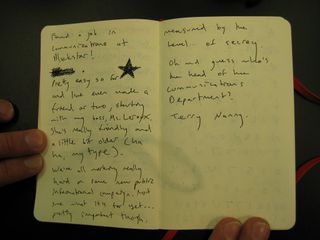 Found a job in
communications at
Blackstar!
Pretty easy so far
and I've even made a
friend or two, starting
with my boss, Ms. Leroux.
She's really friendly and
a little bit older (ha
ha, my type).
We're all working really
hard on some new public
informational campaign. Not
sure what it's for yet...
pretty important though,
measured by the
level... of secrecy.
Oh and guess who's
the head of the
Communications
Department?
Terry Nanny.